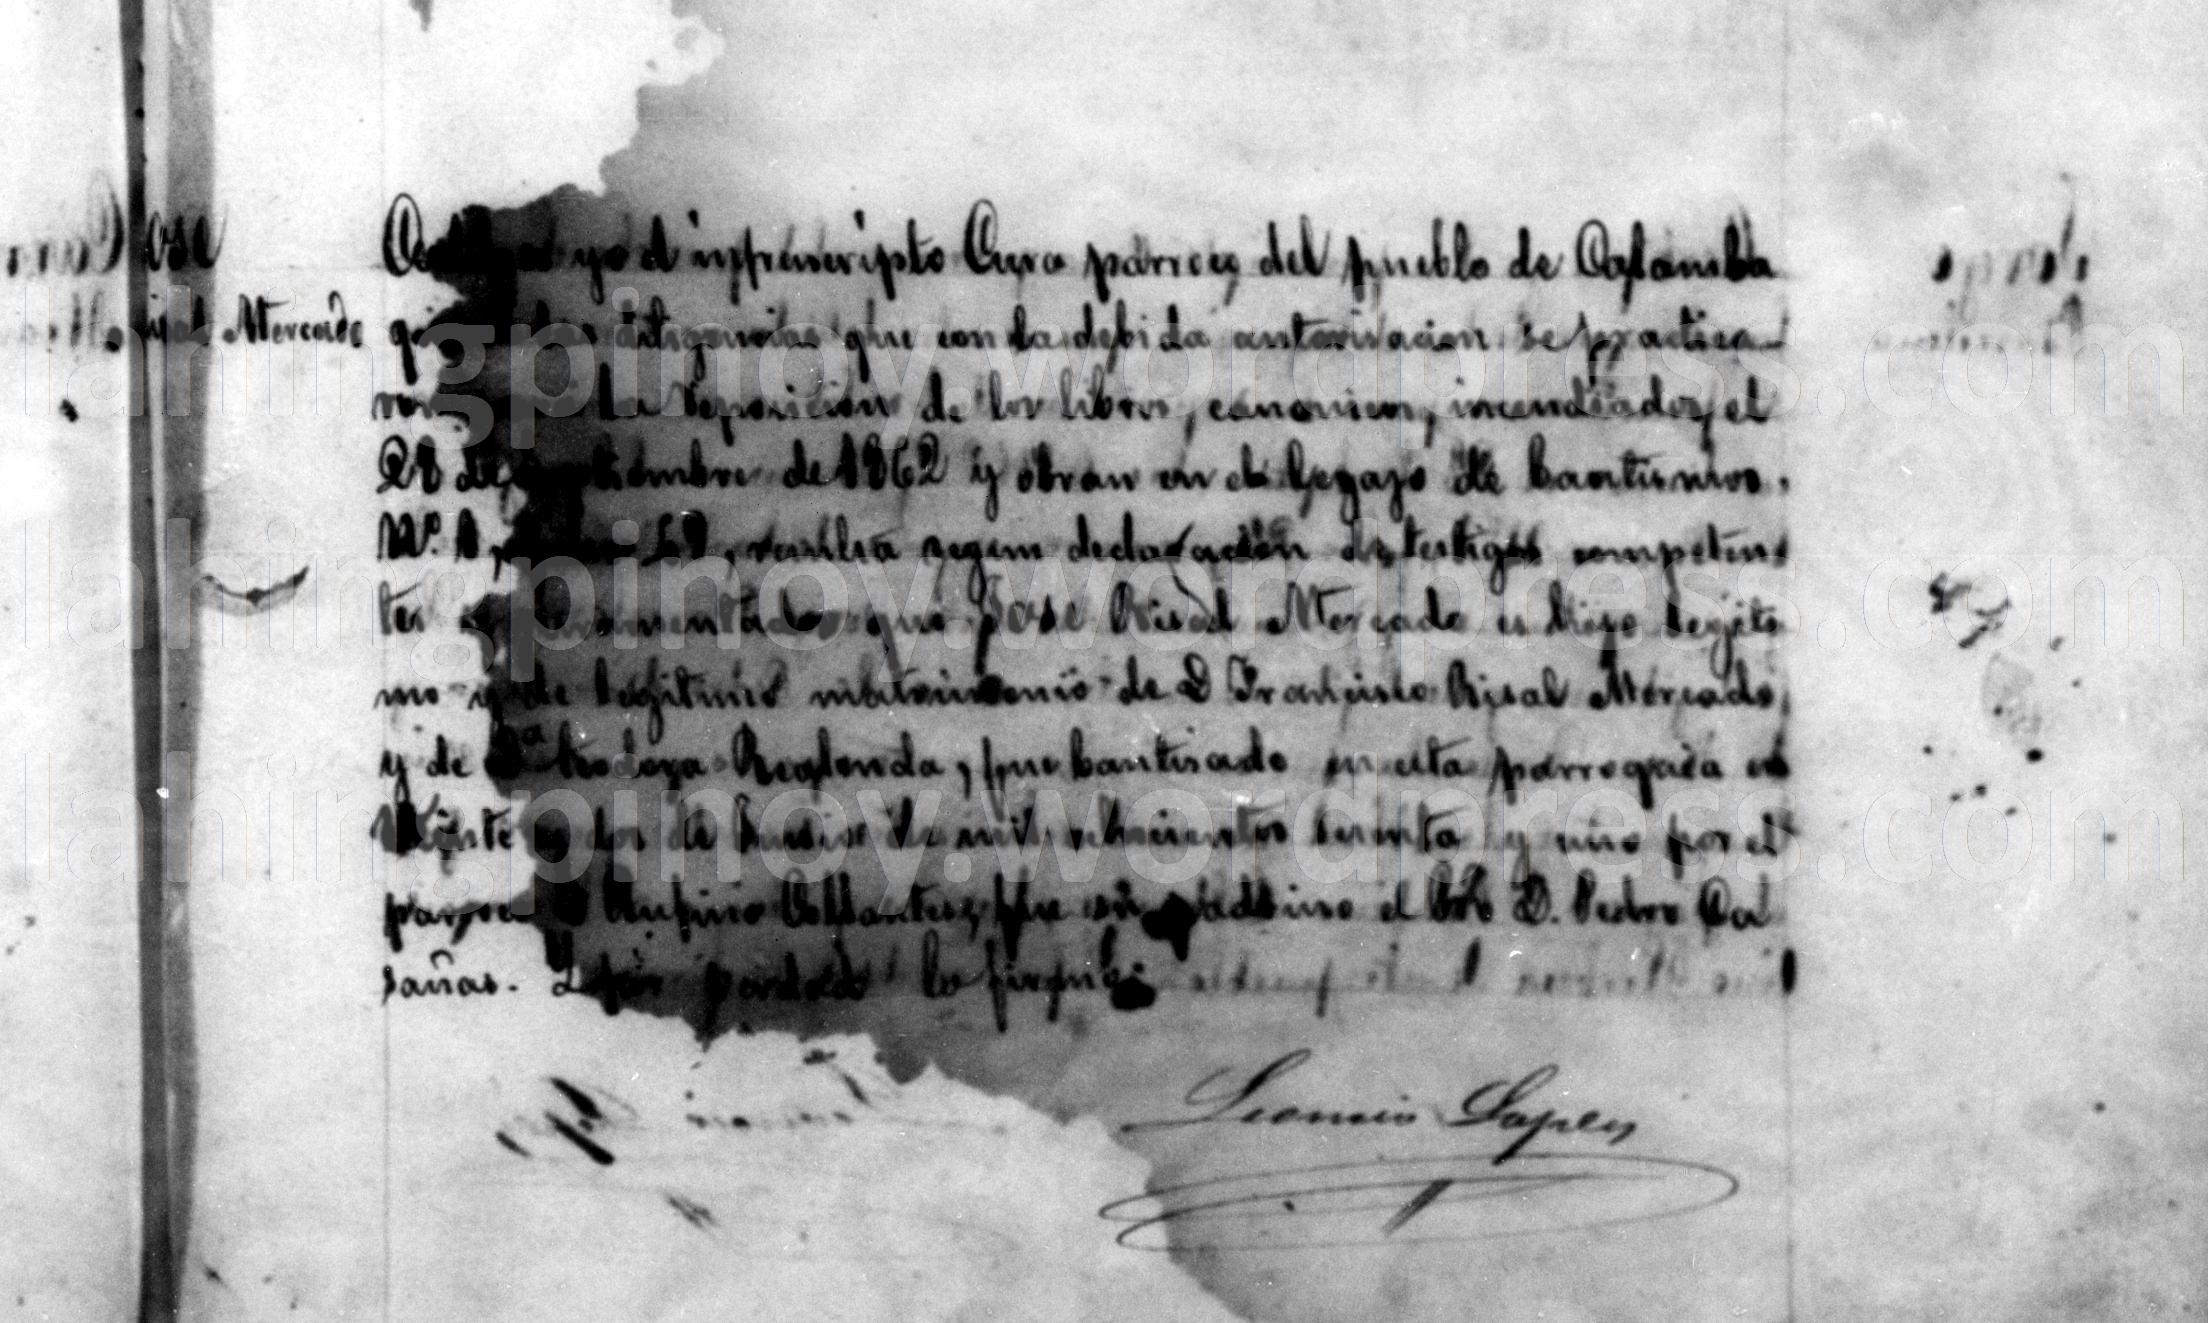 Jose
Risal Mercado
yo el infrenscripto Cura parroco del pueblo de Calamba
que las diligencias que con la debida autorisacion se practica
ron la reposicion de los libros canonicos, incendiados el
28 de Setiembre de 1862 y obran en el legajo de bautismos.
Nº. 1, 69, resulta segun declaracion de testigos competen
tes juramentados que Jose Risal Mercado es hijo legiti
mo y de legitimo matrimonio de D Francisco Risal Mercado
y de Dª Teodora Realonda, fue bautisado en esta parroquia en
Veinte y dos de Junio de mil ochocientos sesenta y uno por el
parroco D Rufino Collantes, fue su padrino el Pbro D. Pedro Ca
sañas. Y por verdad lo firmé.
Leoncio Lopez
lahingpinoy.wordpress.com
lahingpinoy.wordpress.com
lahingpinoy.wordpress.com